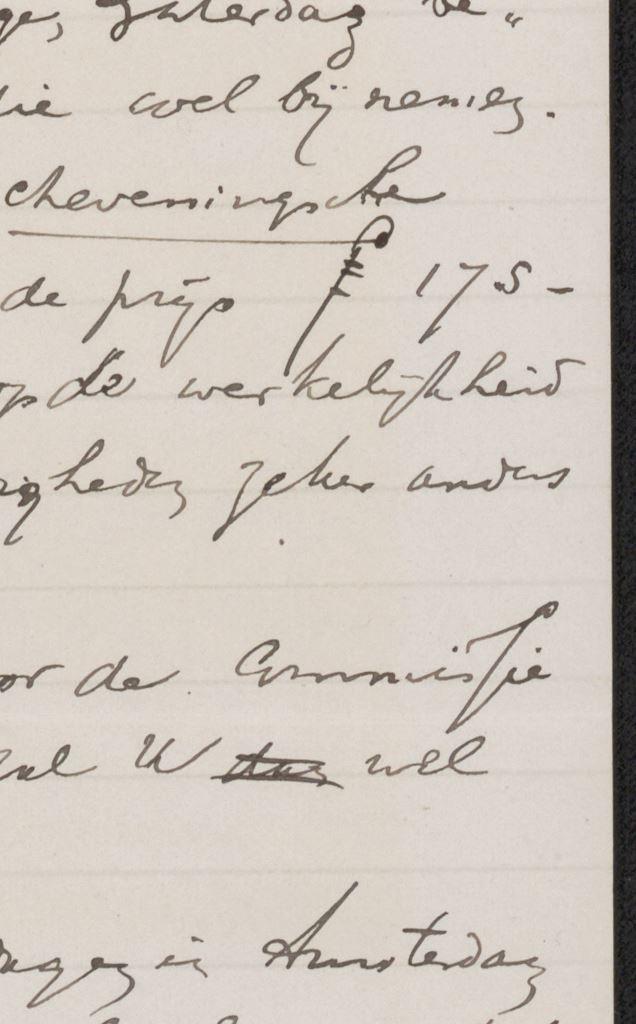 ge, Zaterdag be„
die wel bij nemen.
cheveningsche
de prijs ƒ 175-
op de werkelijkheid
igheden zeker anders
or de Commissie
zal U dan wel
dagen in Amsterdam